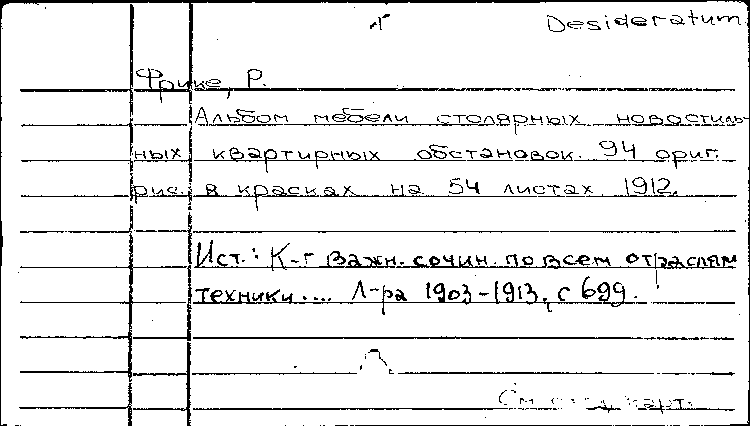 Desideratum
Фрике, Р.
Альбом мебели столярных новостиль-
ных квартирных обстановок. 94 ориг.
рис. в красках на 54 листах 1912.
Ист.: К-г важн. сочин. по всем отраслям
техники.... Л-ра 1903-1913, с 699.
См. след. карт.